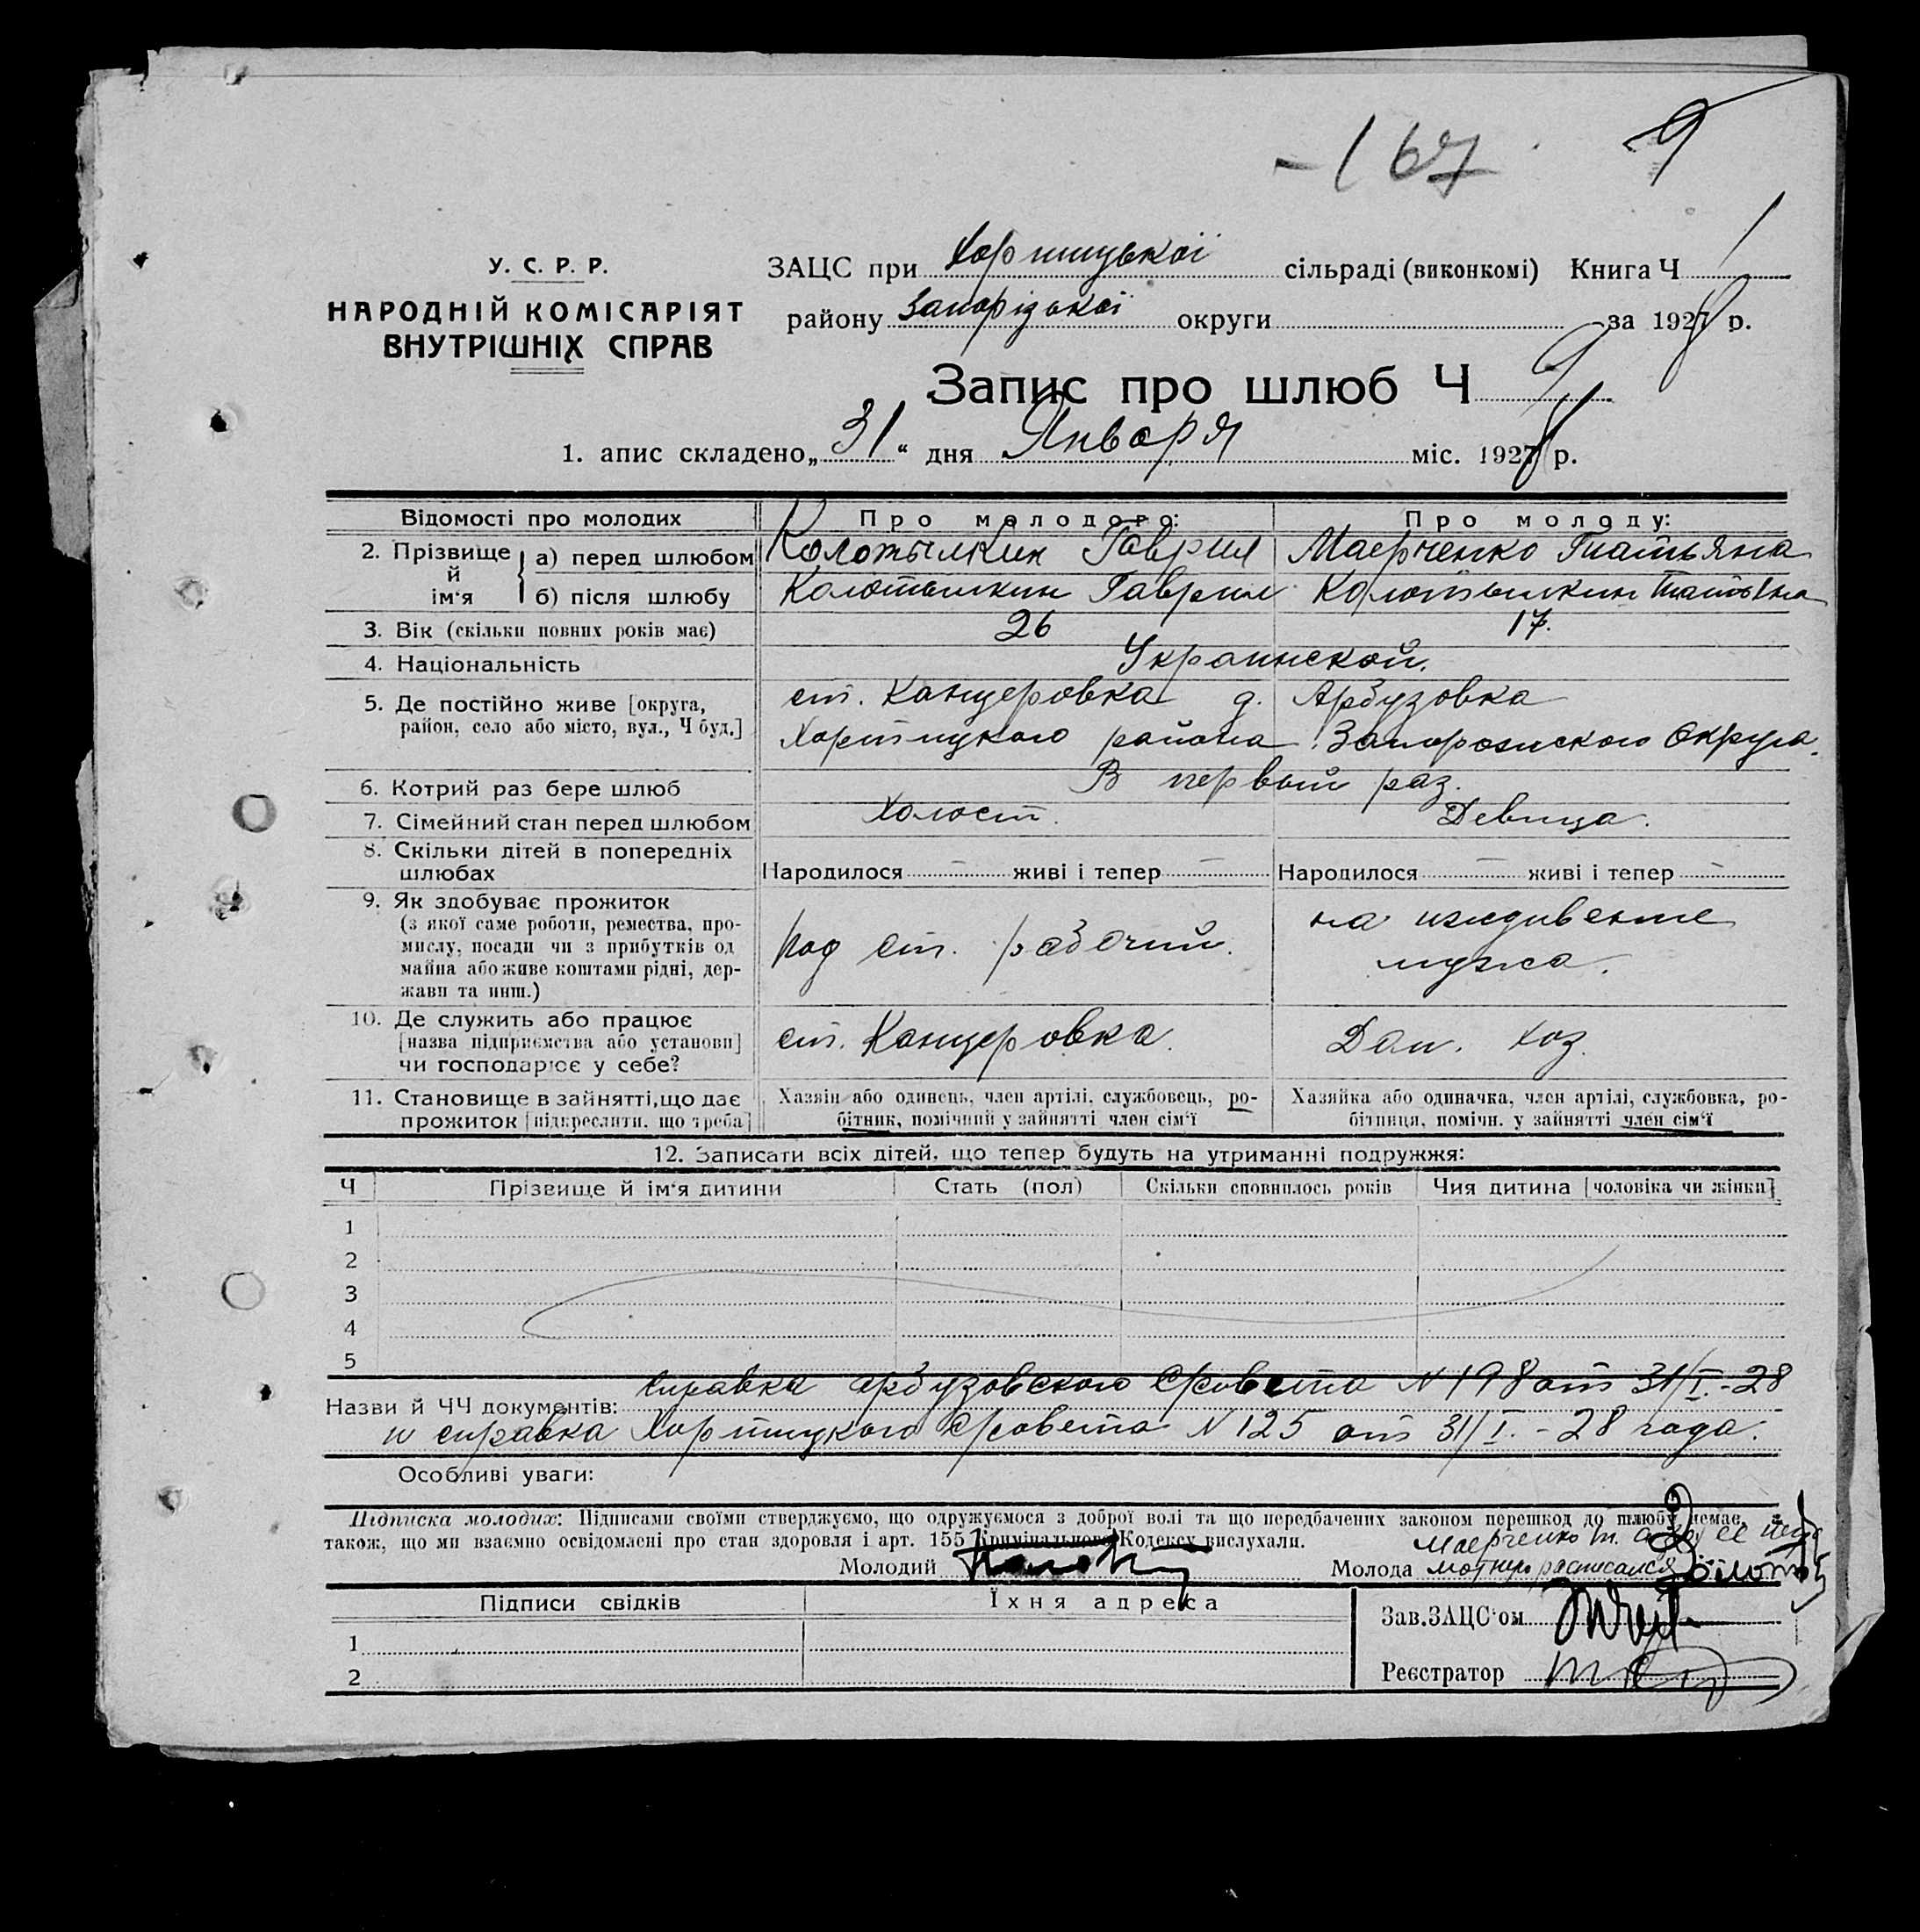 -167
9
У. С. Р. Р.
НАРОДНІЙ КОМІСАРІЯТ
ВНУТРІШНІХ СПРАВ
ЗАЦС при Хортицької сільраді (виконкомі) Книга Ч 1
району Запорізької округи за 1928 р.
Запис про шлюб Ч 9
1. апис складено „31“ дня Января міс. 1928 р.
Відомості про молодих Про молодого: Про молоду:
2. Прізвище й ім‘я а) перед шлюбом Колотылкин Гаврил Маерченко Татьяна
б) після шлюбу Колотылкин Гаврил Колотылкин Татьяна
3. Вік (скільки повних років має) 26 17.
4. Національність Украинской.
5. Де постійно живе [округа, ст. Канцеровка д. Арбузовка
район, село або місто, вул., Ч буд.] Хортицкого района Запорожского Округа.
6. Котрий раз бере шлюб В первый раз.
7. Сімейний стан перед шлюбом Холост. Девица.
8. Скільки дітей в попередніх
шлюбах Народилося — живі і тепер — Народилося — живі і тепер —
9. Як здобуває прожиток
(з якої саме роботи, ремества, про- на иждивение
мислу, посади чи з прибутків од под ст. рабочий.
майна або живе коштами рідні, дер- мужа.
жави та инш.)
10. Де служить або працює
[назва підприємства або установи] ст. Канцеровка. Дом. хоз.
чи господарює у себе?
11. Становище в зайнятті, що дає Хазяїн або одинець, член артілі, службовець, ро- Хазяйка або одиначка, член артілі, службовка, ро-
прожиток [підкреслити. що треба] бітник, помічний у зайнятті член сім‘ї бітниця, помічн. у зайнятті член сім‘ї
12. Записати всіх дітей, що тепер будуть на утриманні подружжя:
Ч Прізвище й ім‘я дитини Стать (пол) Скільки сповнилось років Чия дитина [чоловіка чи жінки]
1
2
3
4
5
справка Арбузовского С/совета N 198 от 31/I.-28
Назви й ЧЧ документів:
и справка Хортицкого с/совета N 125 от 31/I.-28 года.
Особливі уваги:
Підписка молодих: Підписами своїми стверджуємо, що одружуємося з доброї волі та що передбачених законом перешкод до шлюбу немає, а
також, що ми взаємно освідомлені про стан здоровля і арт. 155 Кримінального Кодексу вислухали.
Маерченко Т. а за ее
Молодий Молода расписался
Підписи свідків Їхня адреса
Зав. ЗАЦС‘ом
1
Реєстратор
2